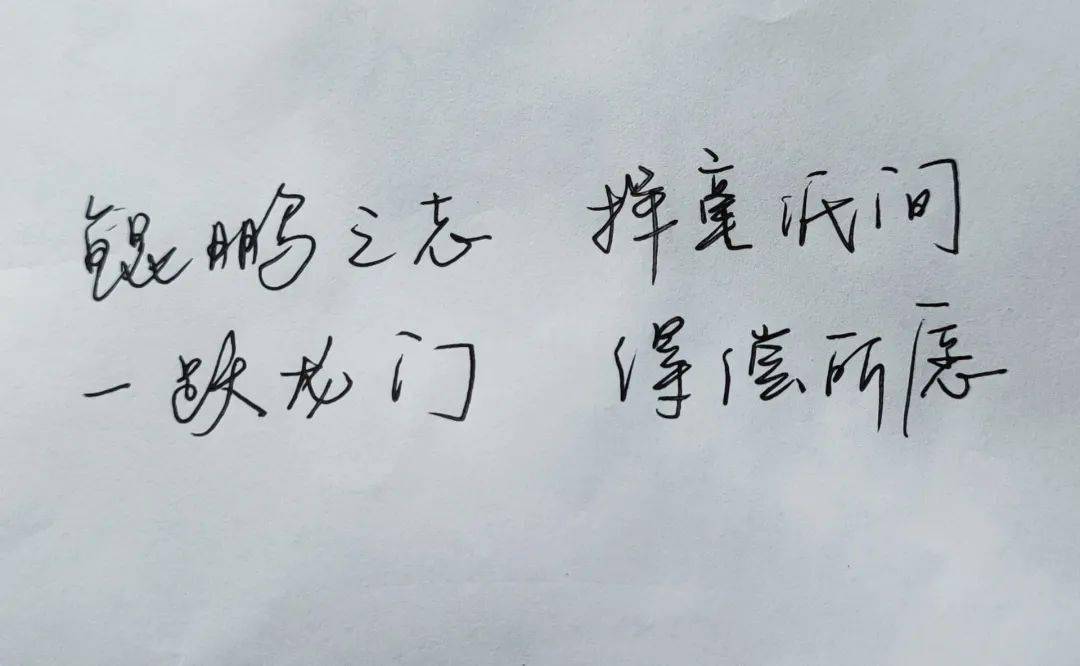 鲲鹏之志 挥毫纸间
一跃龙门 得偿所愿